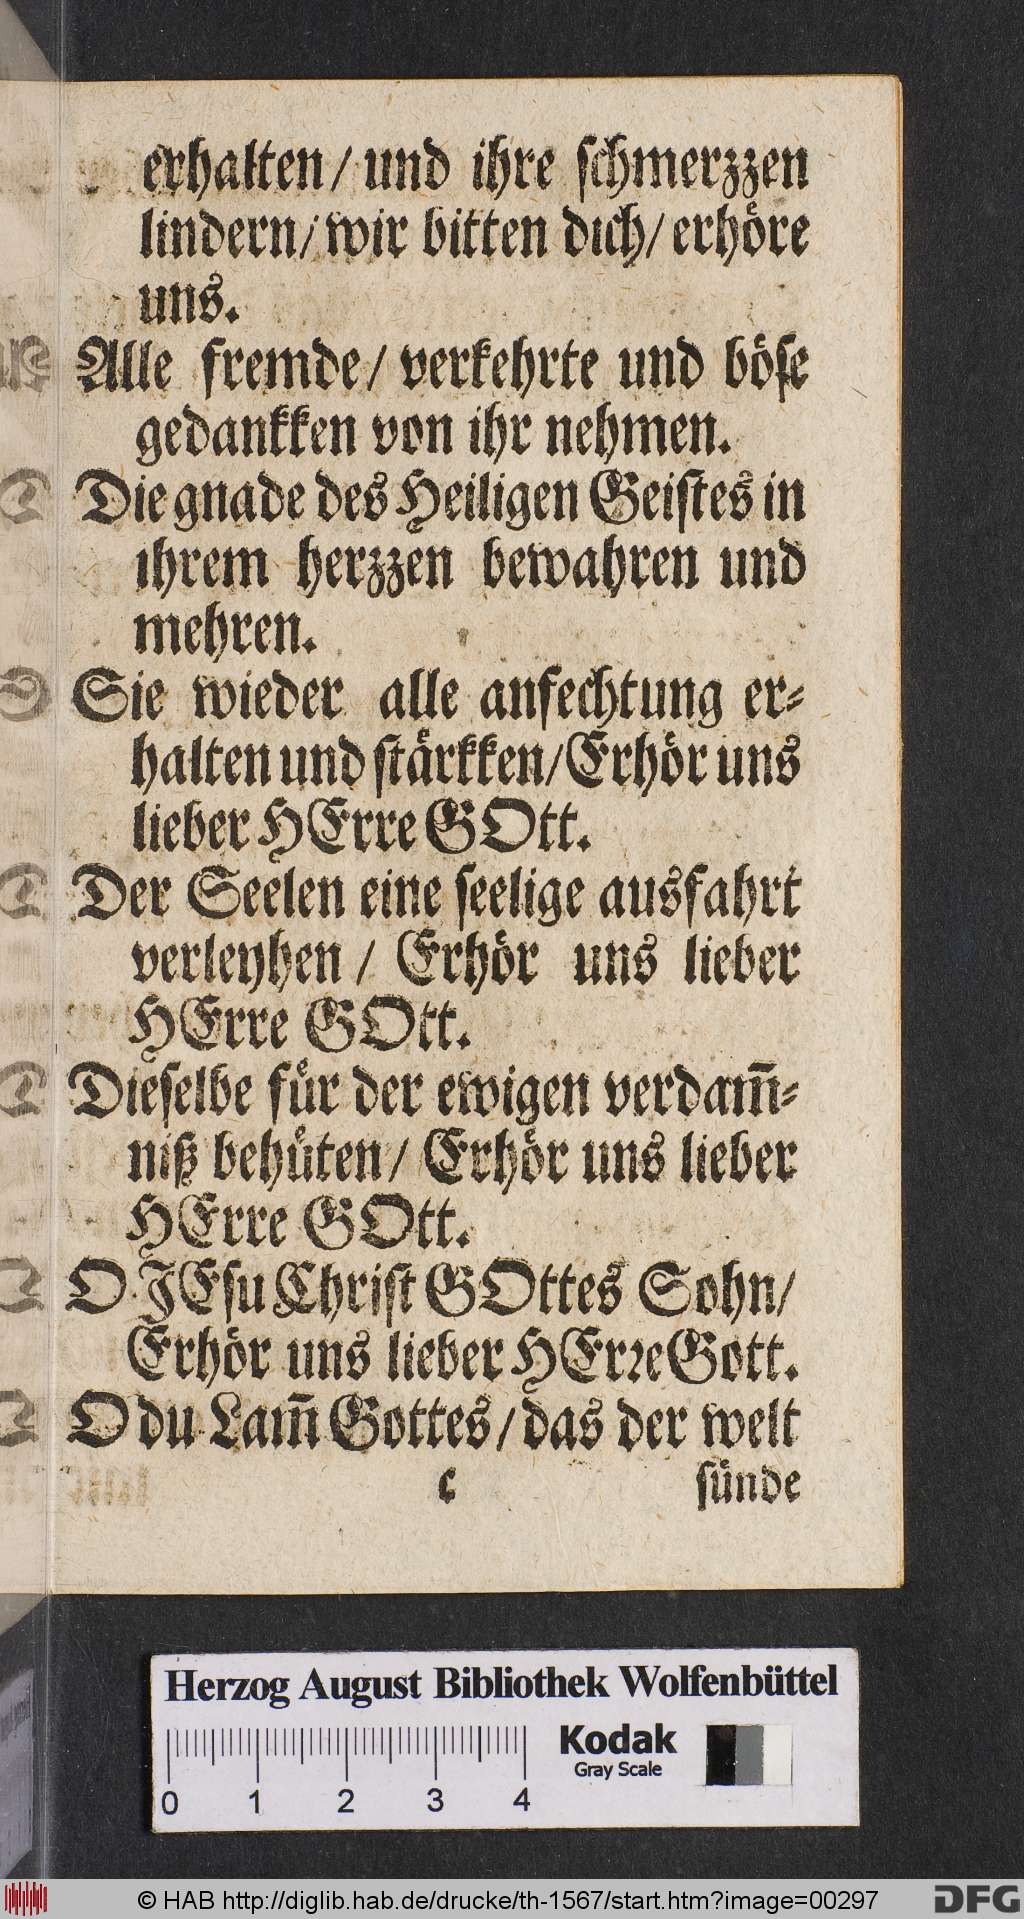 erhalten/ und ihre schmerzzen
lindern/ wir bitten dich/ erhöre
uns.
Alle fremde/ verkehrte und böse
gedankken von ihr nehmen.
Die gnade des Heiligen Geistes in
ihrem herzzen bewahren und
mehren.
Sie wieder alle anfechtung er⸗
halten und stärkken/ Erhör uns
lieber HErre GOtt.
Der Seelen eine seelige ausfahrt
verleyhen / Erhör uns lieber
HErre GOtt.
Dieselbe für der ewigen verdam̄⸗
niß behüten/ Erhör uns lieber
HErre GOtt.
O JEsu Christ GOttes Sohn/
Erhör uns lieber HErꝛe Gott.
O du Lam̄ Gottes/ das der welt
c sünde
Herzog August Bibliothek Wolfenbüttel
Kodak
Gray Scale
0 1 2 3 4
© HAB http://diglib.hab.de/drucke/th-1567/start.htm?image=00297
DFG